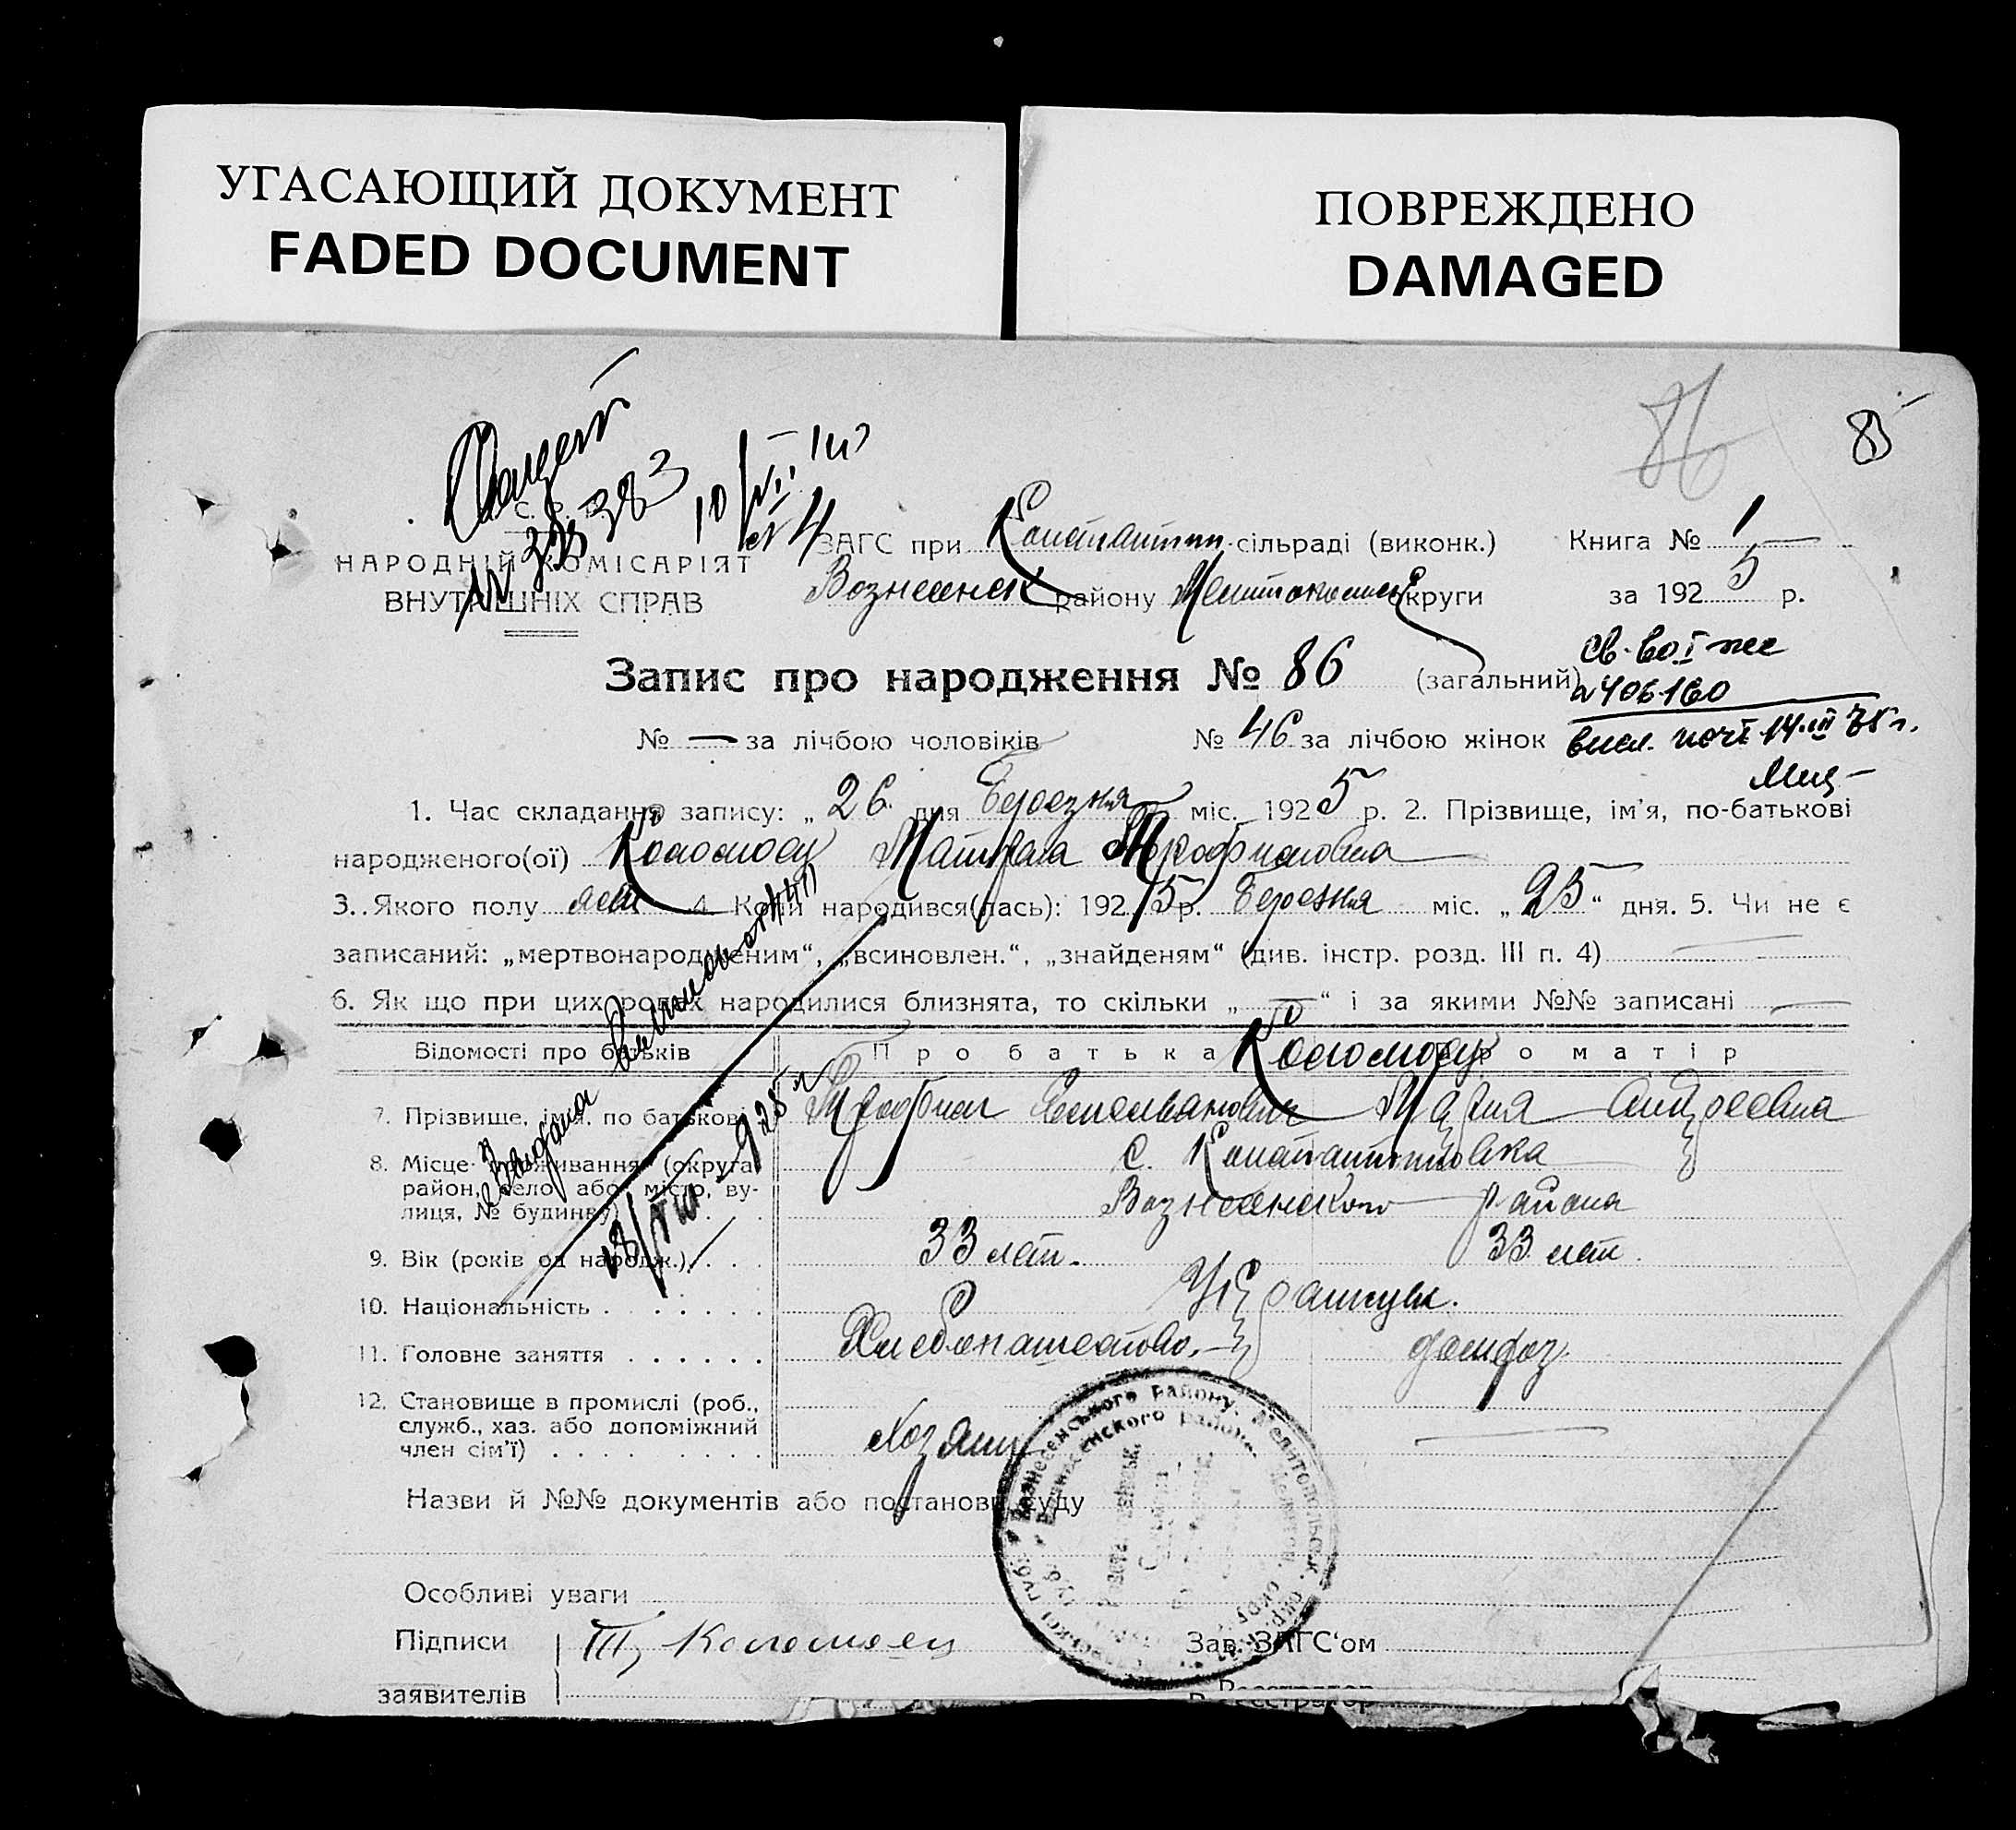 УГАСАЮЩИЙ ДОКУМЕНТ
FADED DOCUMENT
ПОВРЕЖДЕНО
DAMAGED
86
85
383
НАРОДНІЙ КОМІСАРІЯТ
ВНУТРІШНІХ СПРАВ
ЗАГС при Константин. сільраді (виконк.)
Вознесенск району Мелитопольск округи
Книга № 1
за 1925 р.
Запис про народження № 86 (загальний)
№ — за лічбою чоловіків № 46 за лічбою жінок
св-во I
406160
14.III 75 г.
1. Час складання запису: „26" дня Березня міс. 1925 р. 2. Прізвище, ім'я, по-батькові
народженого(ої) Коломоец Матрена Трофимовна
3. Якого полу жен 4. Коли народився(лась): 1925 р. Березня міс. „25" дня. 5. Чи не є
записаний: „мертвонародженим", „всиновлен.", „знайденям" (див. інстр. розд. III п. 4)
6. Як що при цих родах народилися близнята, то скільки „—" і за якими №№ записані —
Відомості про батьків
Про батька
Про матір
Коломоец
7. Прізвище, імя, по батькові Трофим Селиванович Мария Андреевна
8. Місце проживання (округа, район, село або місто, ву-
лиця, № будинку)
с. Константиновка
Вознесенского района
9. Вік (років од народж.) 33 лет. 33 лет.
10. Національність Украинцы.
11. Головне заняття Хлебопашество. домхоз.
12. Становище в промислі (роб.,
служб., хаз. або допоміжний
член сім'ї)
Хозяин —
Назви й №№ документів або постанови суду
Вознесенського району, Мелитопольськ. округи
Вознесенского района
Особливі уваги
Підписи
заявителів
Т. Коломоец
Зав. ЗАГС'ом
Реєстратор